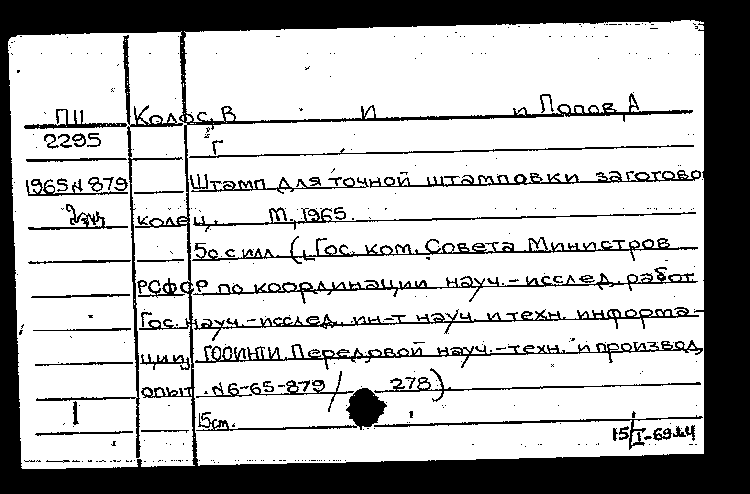 ПII Колос, В И и Попов, А
2295 Г
1965 N 879 Штамп для точной штамповки заготово
колец. М., 1965.
50 с илл. (Гос. ком. Совета Министров
РСФСР по координации науч.-исслед. работ
Гос. науч.-исслед. ин-т науч. и техн. информа-
ции, ГОСИНТИ. Передовой науч.-техн. и производ,
опыт. N 6-65-879/278).
15 см.
15/I-69 г.